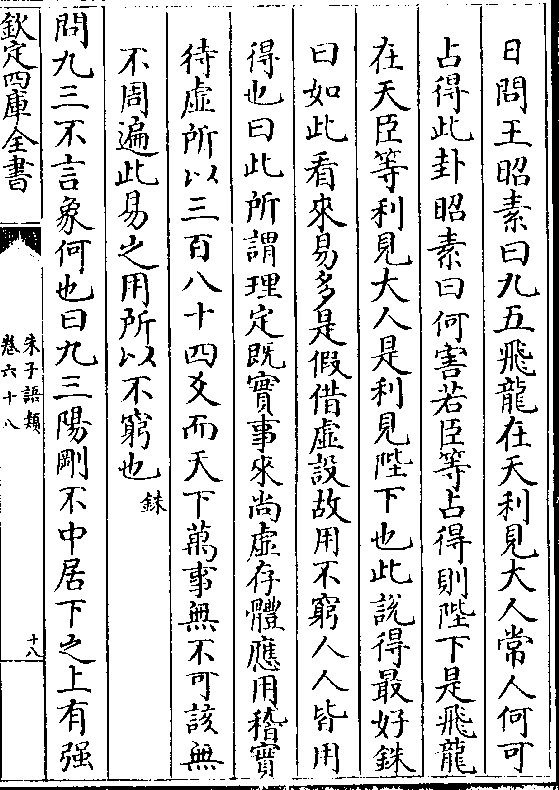 日問王昭素曰九五飛龍在天利見大人常人何可
占得此卦昭素曰何害若臣等占得則陛下是飛龍
在天臣等利見大人是利見陛下也此說得最好銖
曰如此看來易多是假借虛設故用不窮人人皆用
得也曰此所謂理定既實事來尚虛存體應用稽實
待虛所以三百八十四爻而天下萬事無不可該無
不周遍此易之用所以不窮也 銖
問九三不言象何也曰九三陽剛不中居下之上有强
欽定四庫全書
朱子語類
卷六十八
十八